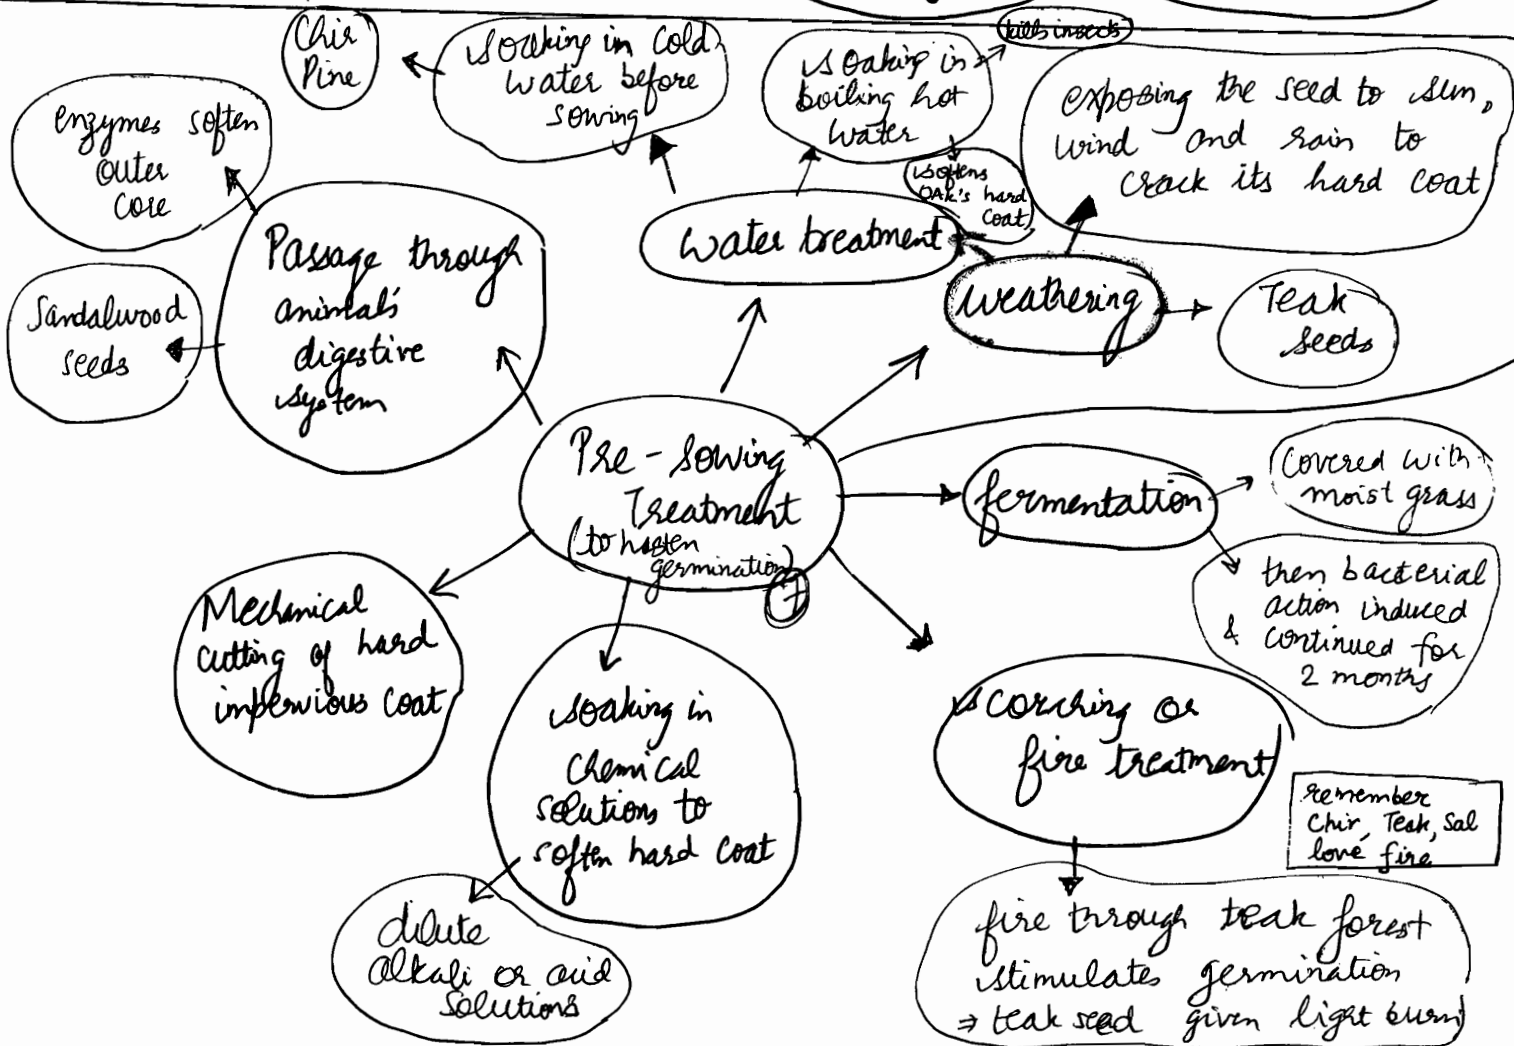 Chir
Pine
soaking in cold
water before
sowing
soaking in
boiling hot
water
kills insects
softens
OAK's hard
coat
exposing the seed to sun,
wind and rain to
crack its hard coat
enzymes soften
outer
core
Sandalwood
seeds
Passage through
animal's
digestive
system
water treatment
weathering
Teak
seeds
Pre-sowing
Treatment
(to hasten
germination)
7
fermentation
covered with
moist grass
then bacterial
action induced
& continued for
2 months
Mechanical
cutting of hard
impervious coat
soaking in
chemical
solutions to
soften hard coat
dilute
alkali or acid
solutions
scorching or
fire treatment
remember
Chir, Teak, Sal
love fire
fire through teak forest
stimulates germination
⇒ teak seed given light burn